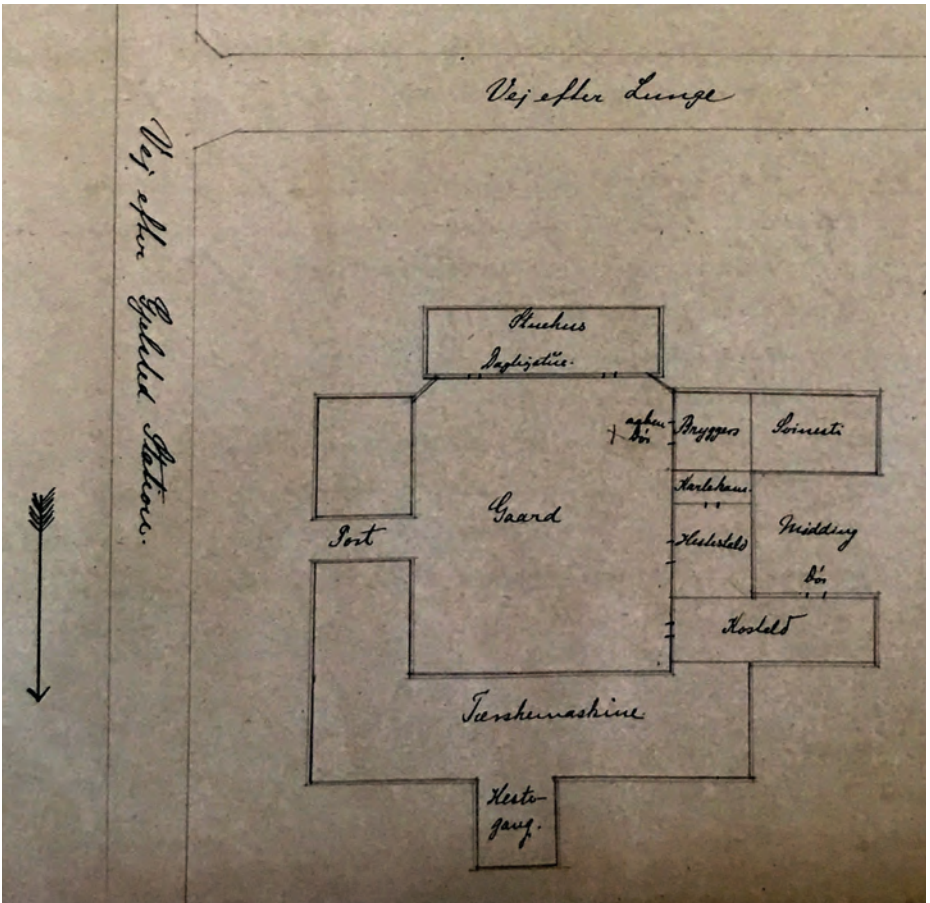 Vej efter Lunge
Vej efter Gjelsted Station.
Stuehus
Dagligstue.
aaben
Dör
Bryggers
Svinesti
Karlekam.
Gaard
Hestestald
Mödding
Port
Dör
Kostald
Tærskemaskine
Heste-
gang.